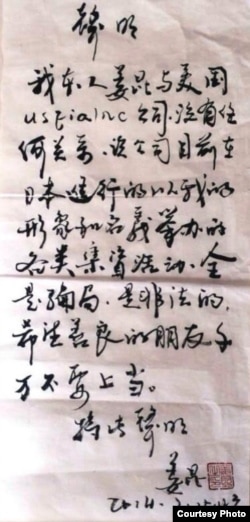 聲明
我本人姜昆与美国
usfiainc公司.没有任
何关系.该公司目前在
日本進行的以我的
形象和名義举办的
各类集資活动.全
是骗局.是非法的.
希望善良的朋友千
万不要上当。
特此聲明
姜昆
2014.
Courtesy Photo